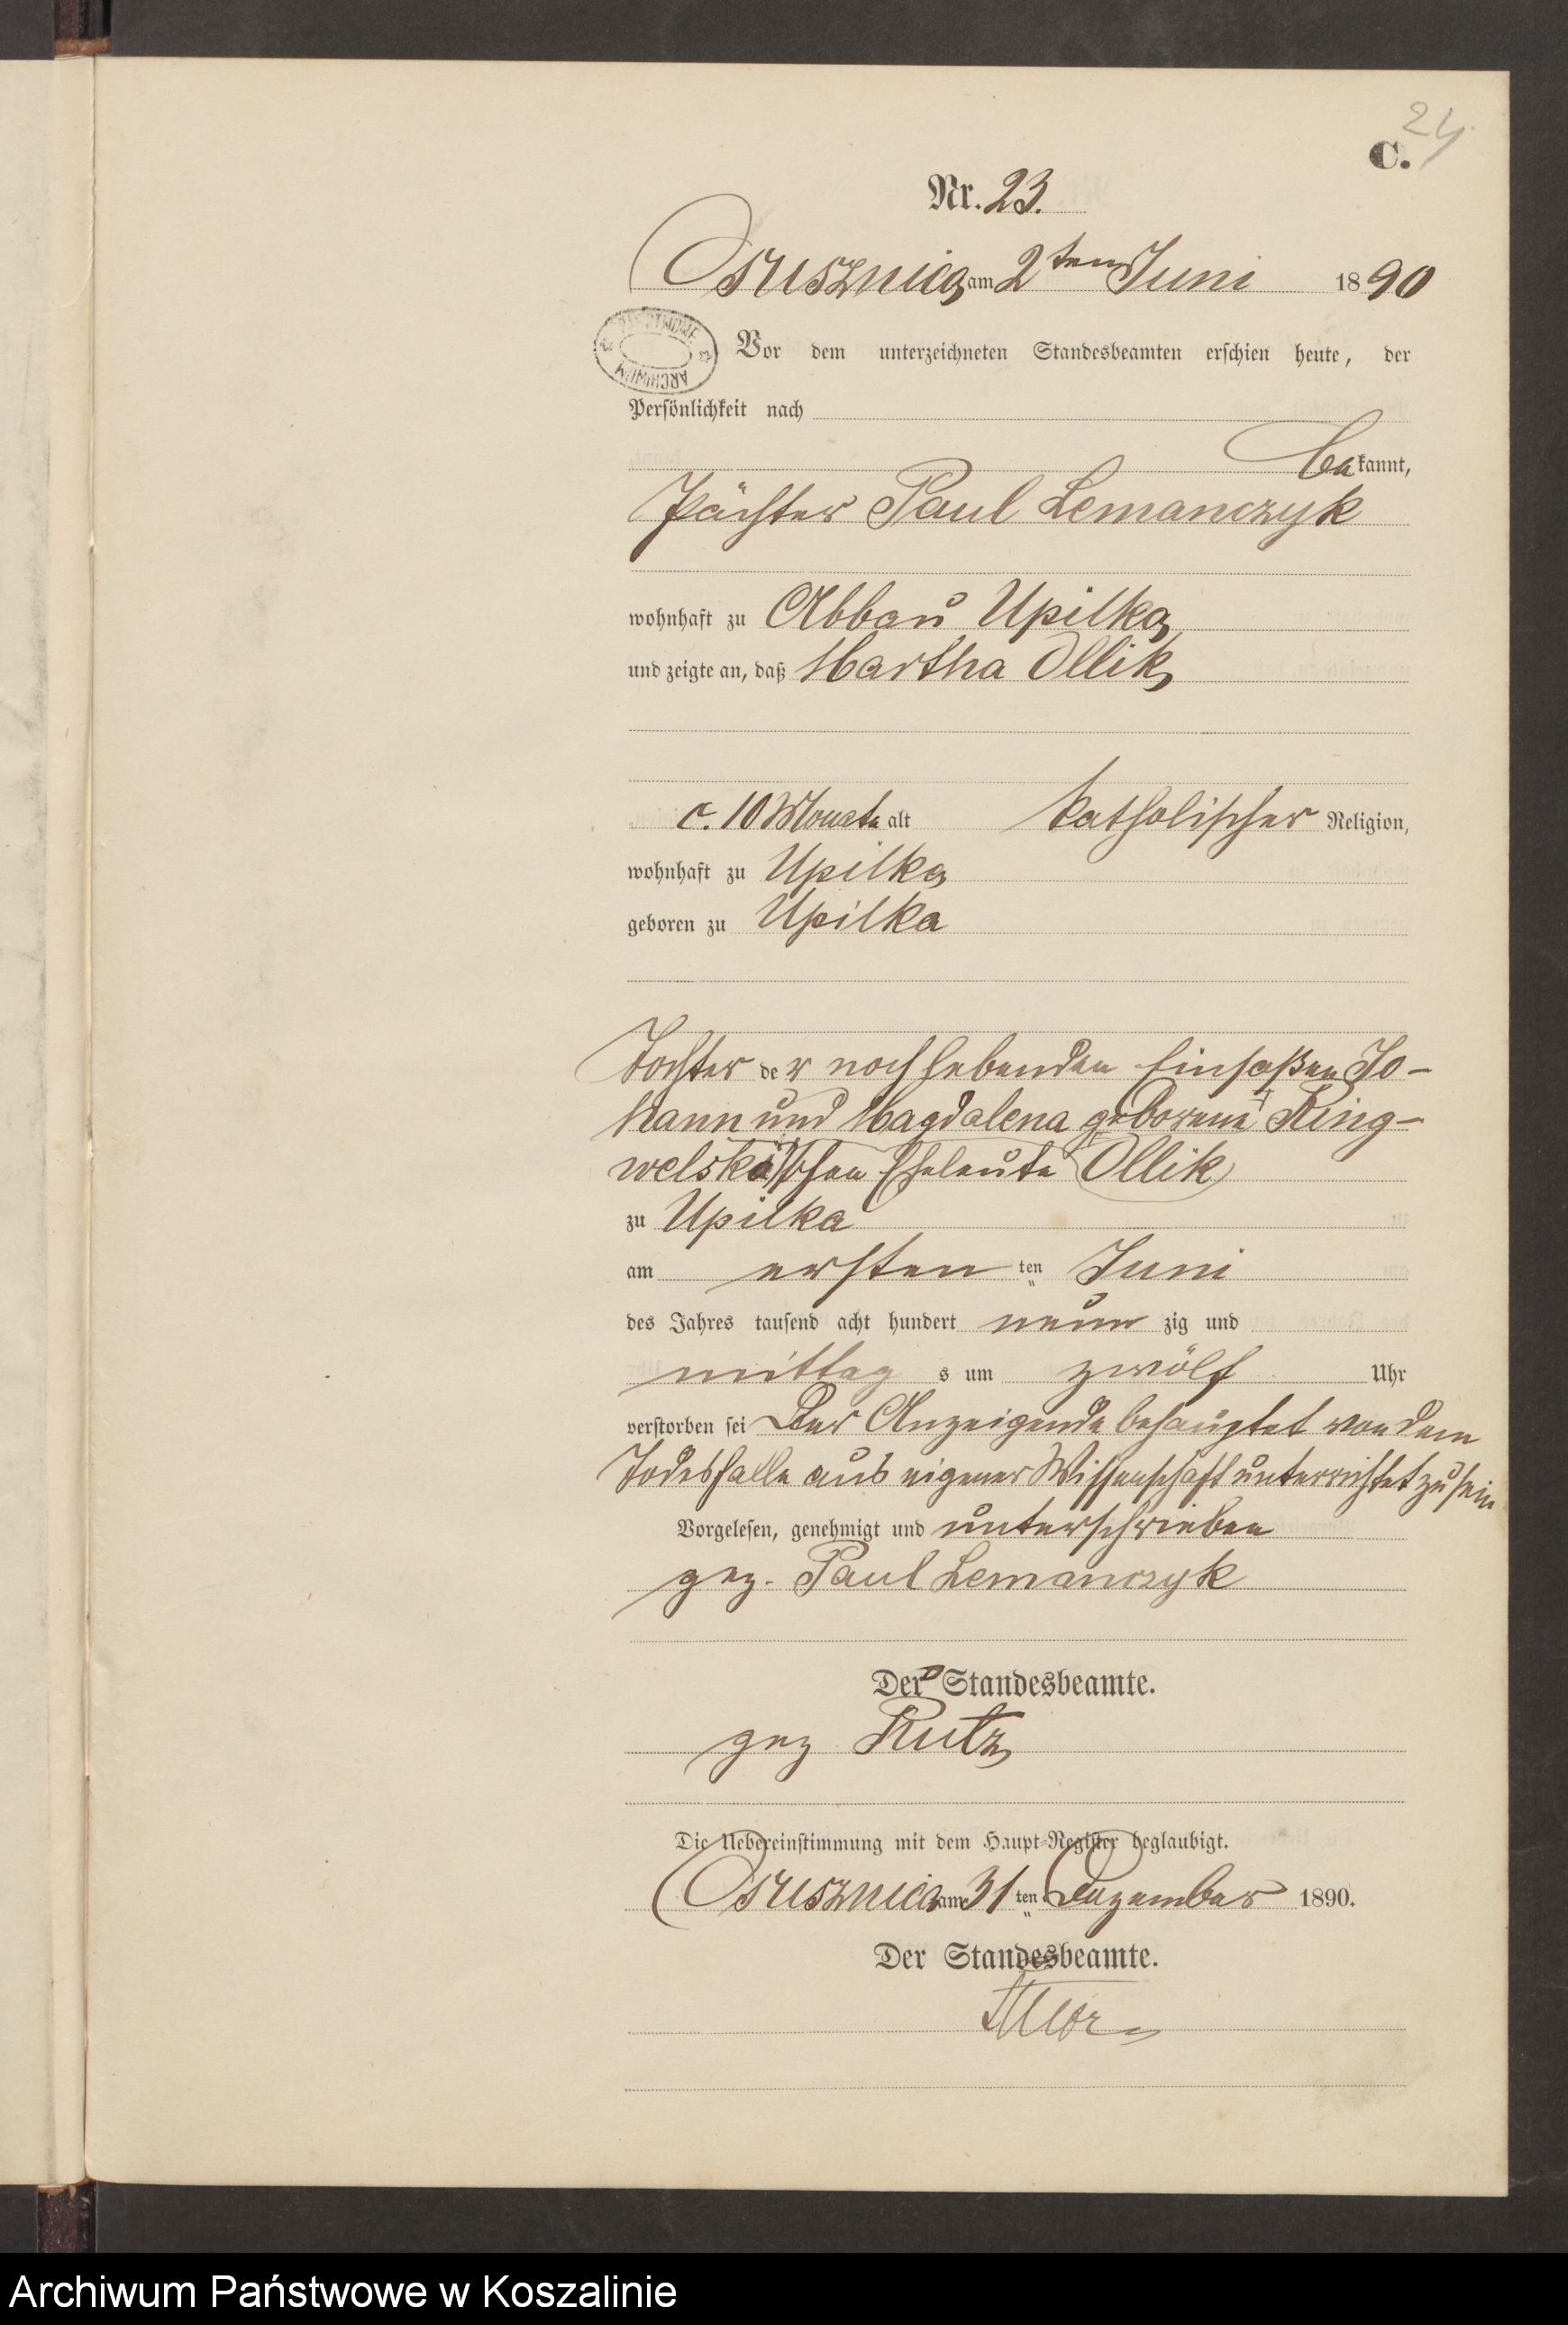 24
C.
Nr. 23.
Osusznica am 2ten Juni 1890
ARCHIWUM
Vor dem unterzeichneten Standesbeamten erschien heute, der
Persönlichkeit nach
bekannt,
Pächter Paul Lemanczyk
wohnhaft zu Abbau Upilka,
und zeigte an, daß Martha Ollik,
c. 10 Monate alt katholischer Religion,
wohnhaft zu Upilka,
geboren zu Upilka
Tochter der noch lebenden Einsaßen Jo-
hann und Magdalena geborene Ring-
welski'schen Eheleute Ollik
zu Upilka
am ersten ten Juni
des Jahres tausend acht hundert neun zig und
mittag s um zwölf Uhr
verstorben sei Der Anzeigende behauptet von dem
Todesfalle aus eigener Wissenschaft unterrichtet zu sein
Vorgelesen, genehmigt und unterschrieben
gez. Paul Lemanczyk
Der Standesbeamte.
gez Rutz,
Die Uebereinstimmung mit dem Haupt-Register beglaubigt.
Osusznica am 31 ten Dezember 1890.
Der Standesbeamte.
Archiwum Państwowe w Koszalinie